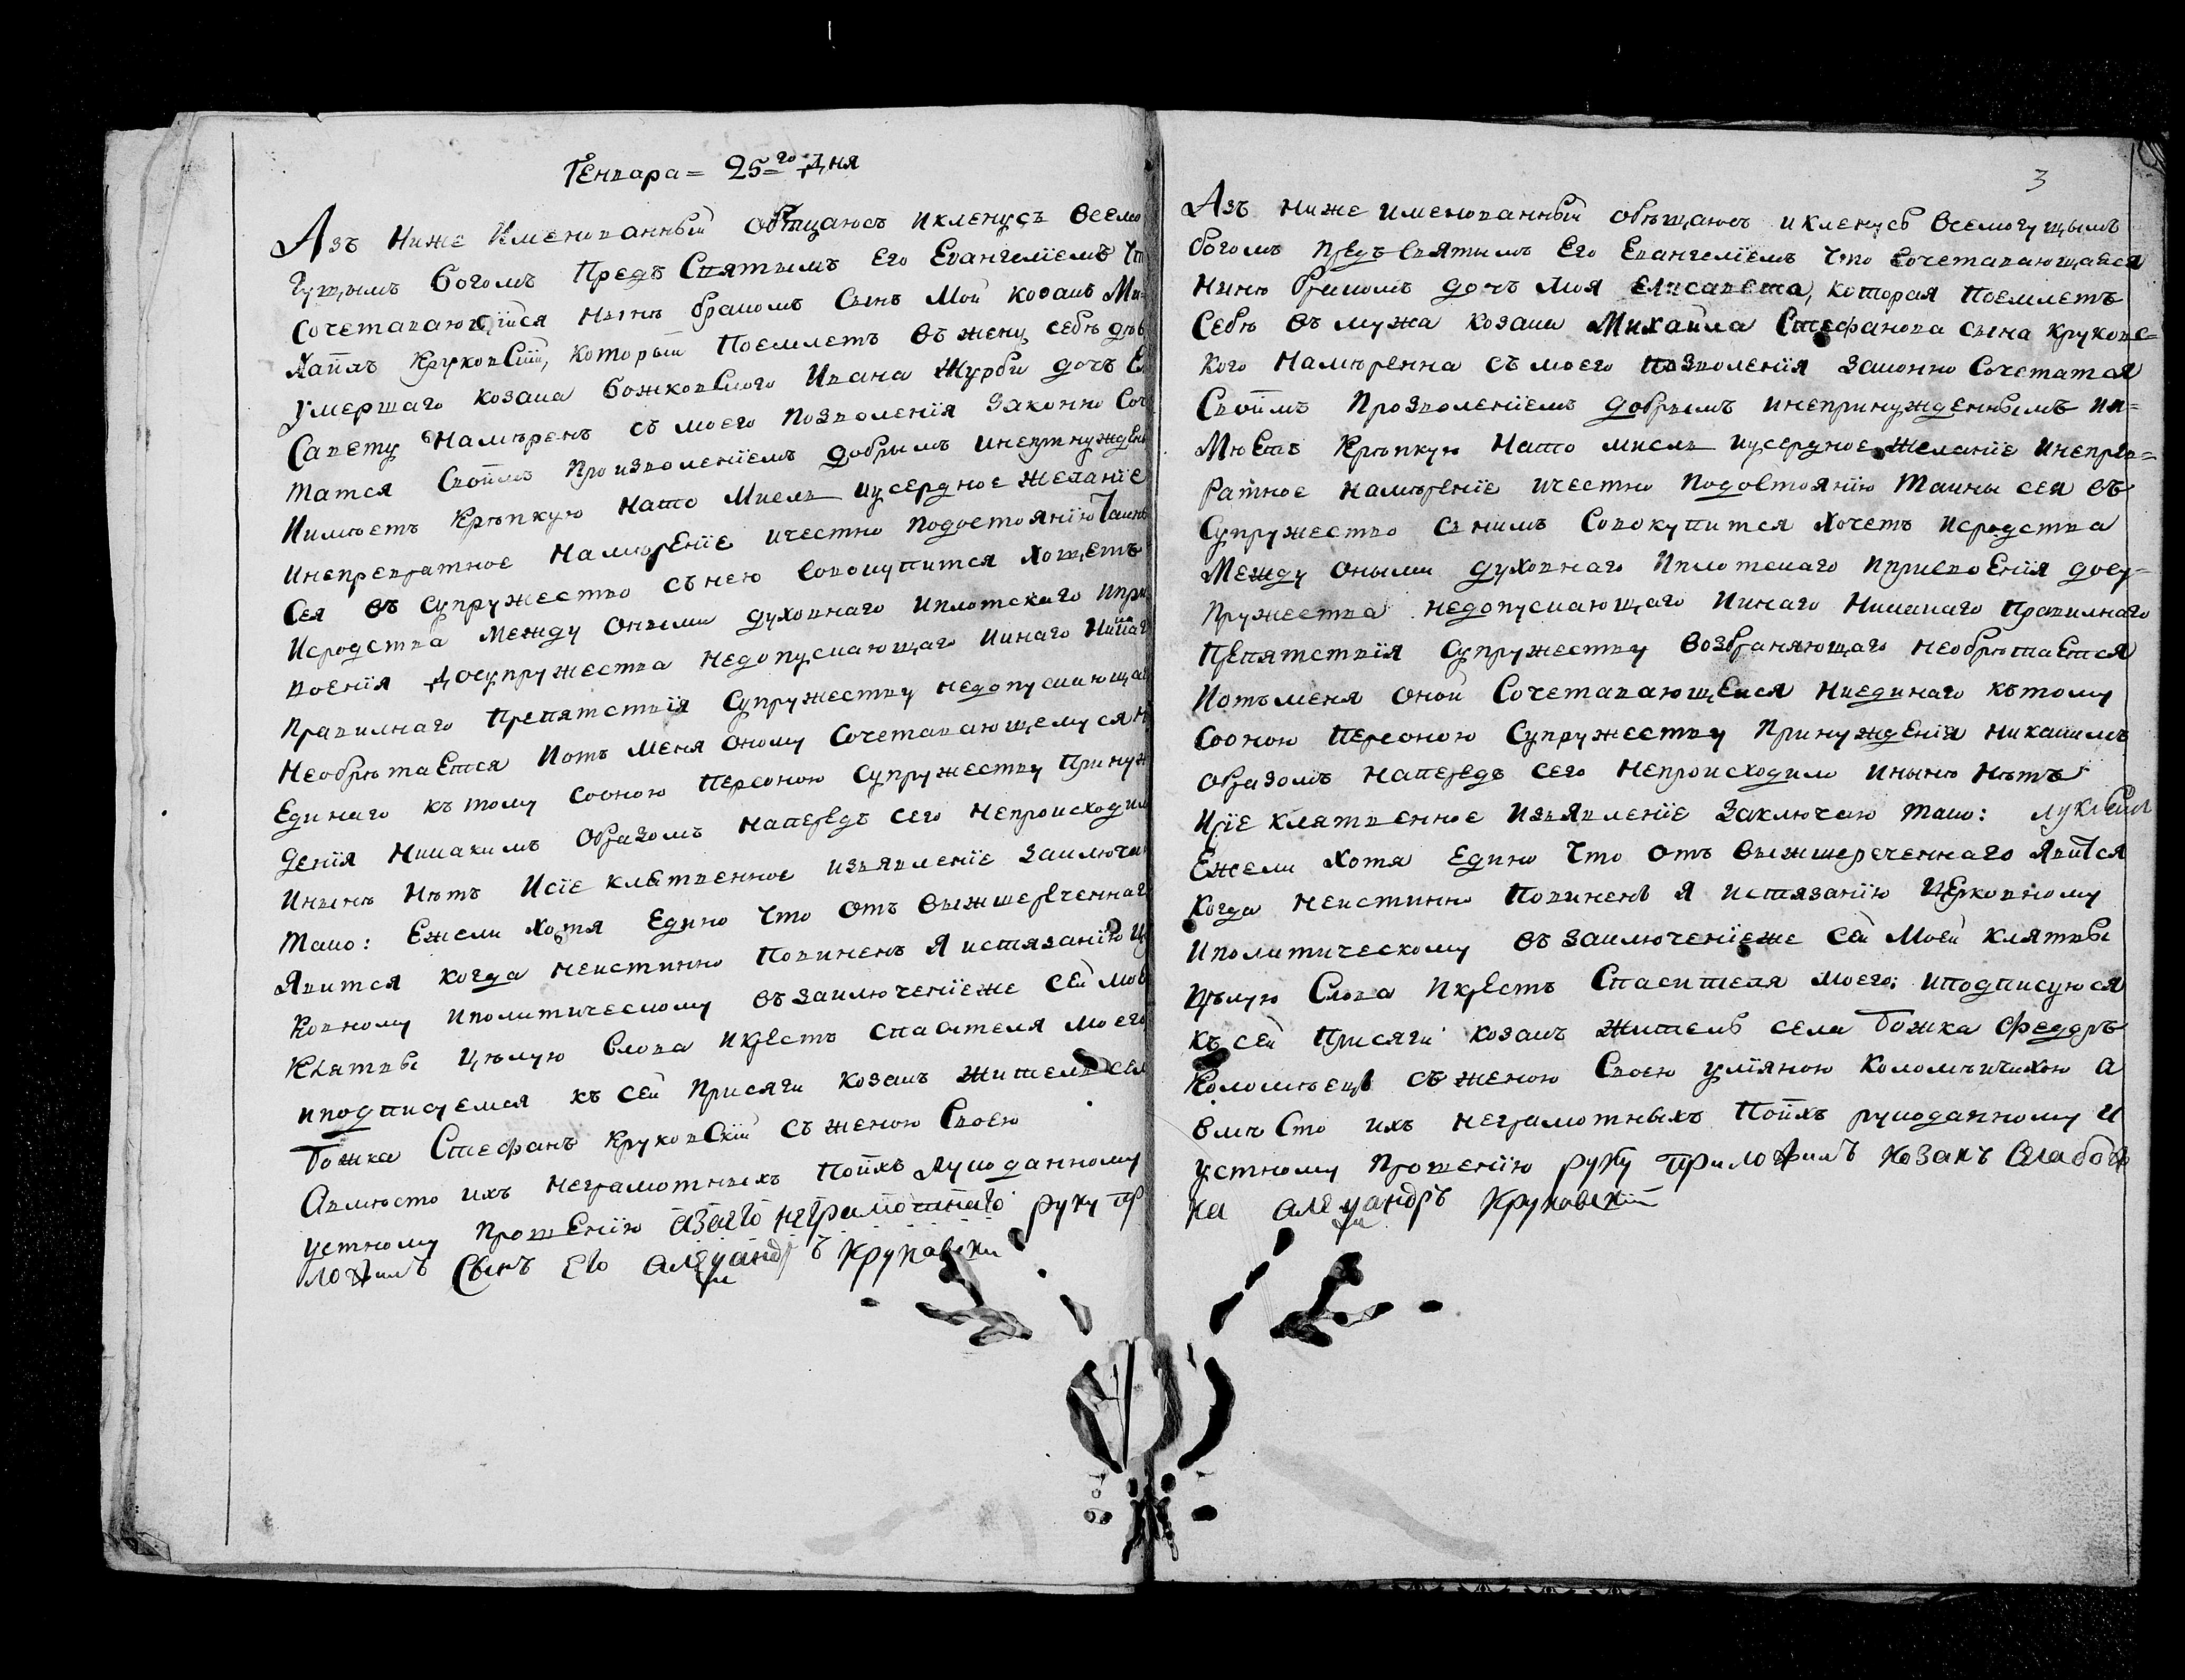 Генвара = 25го дня
Азъ ниже именованный обѣщаюсъ икленусъ всемо
гущымъ богомъ предъ святымъ его Евангелїемъ что
сочетавающїйся нынѣ бракомъ сынъ мой козакъ Ми-
хаилъ круковскїй, который поемлетъ въ жену себѣ дѣв
умершаго козака божковского Ивана Журби дочъ Ел
савету намѣренъ съ моего позволенїя законно соч
татся своимъ произволенїемъ добрымъ инепринужден
Иимѣетъ крѣпкую нато мислъ иусердное желанїе
инепревратное намѣренїе ичестно подостоянїю таинъ
сея въ супружество сънею совокупится хощетъ
Исродства между оными духовнаго иплотскаго ипри
военїя досупружества недопускающаго иинаго никаг
правилнаго препятствїя супружеству недопускающа
необрѣтается иотъ меня оному сочетавающемуся н
Единаго къ тому сооною персоною супружеству принуж
денїя никакимъ образомъ напередъ сего непроисходил
инынѣ нѣтъ Исїе клятвенное извявленїе заключа
тако: Ежели хотя едино что отъ вышшереченнаг
явится когда неистинно повиненъ я истязанїю це
ковному иполитическому въ заключенїеже сей моей
клятвы цѣлую слова икрестъ спасителя моего
иподписуемся къ сей присяги козакъ жителъ сел
божка Стефанъ круковскїй съ женою своею
Авмѣсто ихъ неграмотныхъ поихъ рукоданному
устному прошенїю азаего неграмотнаго руку пр
ложилъ сынъ его александръ круковски
3
Азъ ниже именованный обѣщаюсъ икленусъ всемогущымъ
богомъ предъ святымъ его евангелїемъ что сочетавающаяся
нинѣ бракомъ дочъ моя елисавета, которая поемлетъ
себѣ въ мужа козака Михаила Стефанова сына круковс=
кого намѣренна съ моего позволенїя законно сочетатся
своимъ прозволенїемъ добрымъ инепринужденнымъ ии=
мѣетъ крѣпкую нато мислъ иусердное желанїе инепрев=
ратное намѣренїе ичестно подостоянїю таины сея въ
супружество снимъ совокупится хочетъ исродства
между оными духовнаго иплотскаго иприсвоенїя досу=
пружества недопускающаго иинаго никакаго правилнаго
препятствїя супружеству возбраняющаго необрѣтается
иотъменя оной сочетавающейся ниединаго кътому
сооною персоною супружеству принужденїя никакимъ
образомъ напередъ сего непроисходило инынѣ нѣтъ
Исїе клятвенное извявленїе заключаю тако:
Ежели хотя едино что отъ вышшереченнаго явится
когда неистинно повиненъ я истязанїю церковному
иполитическому въ заключенїеже сей моей клятвы
цѣлую слова икрестъ спасителя моего: иподписуюся
къ сей присяги козакъ жителъ села божка феодоръ
Коломѣецъ съ женою своею улїяною коломѣичихою а
вмѣсто ихъ неграмотныхъ поихъ рукоданному и
устному прошенїю руку приложилъ козакъ слабод
ка александръ круковскїй